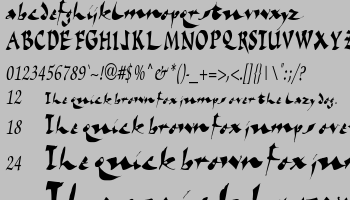 abcdefghijklmnopqrstuvwxyz
ABCDEFGHIJKLMNOPQRSTUVWXYZ
0123456789`~!@#$%^&*()-_+=>,<.[]{}|\":;/?
12 The quick brown fox jumps over the lazy dog.
18 The quick brown fox jumps ove
24 The quick brown fox jun